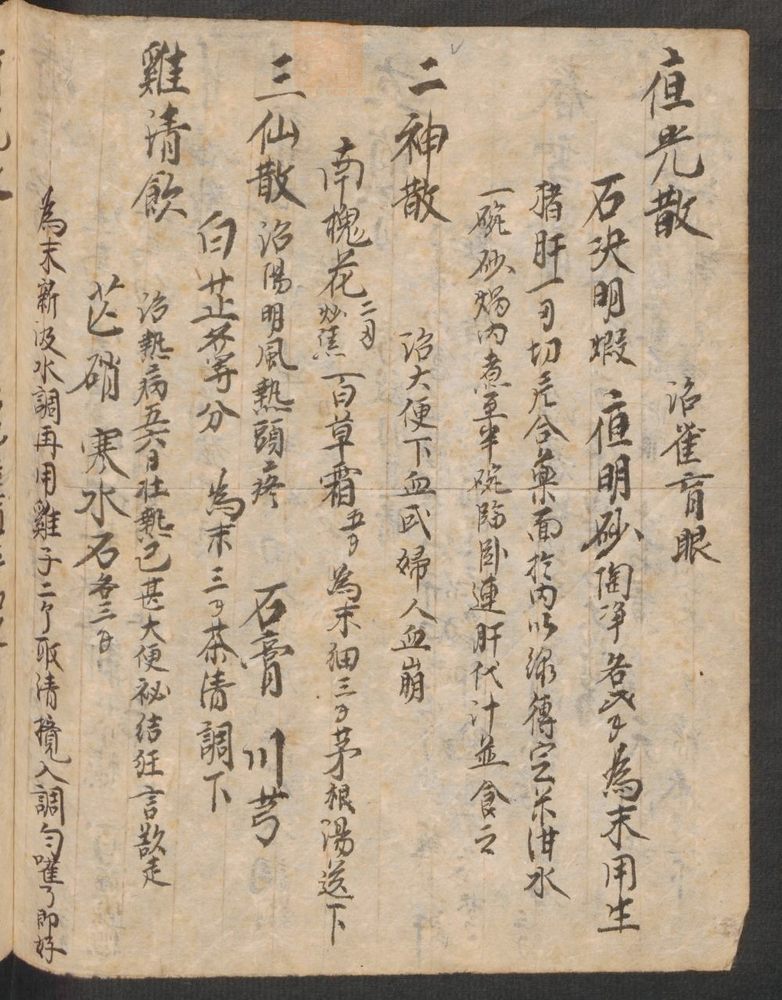 夜光散
治雀盲眼
石決明煅 夜明砂淘净各 為末用生
猪肝一刃切 合藥面於內以線縛定米泔水
一碗砂煱內煮至半碗臨臥連肝代汁並食之
二神散 治大便下血或婦人血崩
南槐花二刃炒焦 百草霜五刃 為末細三刃茅根湯送下
三仙散 治陽明風熱頭疼 石膏 川芎
白芷各等分 為末三刃茶清調下
雞清飲 治熱病五六日壯熱已甚大便祕结狂言欲走
芒硝 寒水石各三刃
為末新汲水調再用雞子二个取清攪入調勻嚾了即好